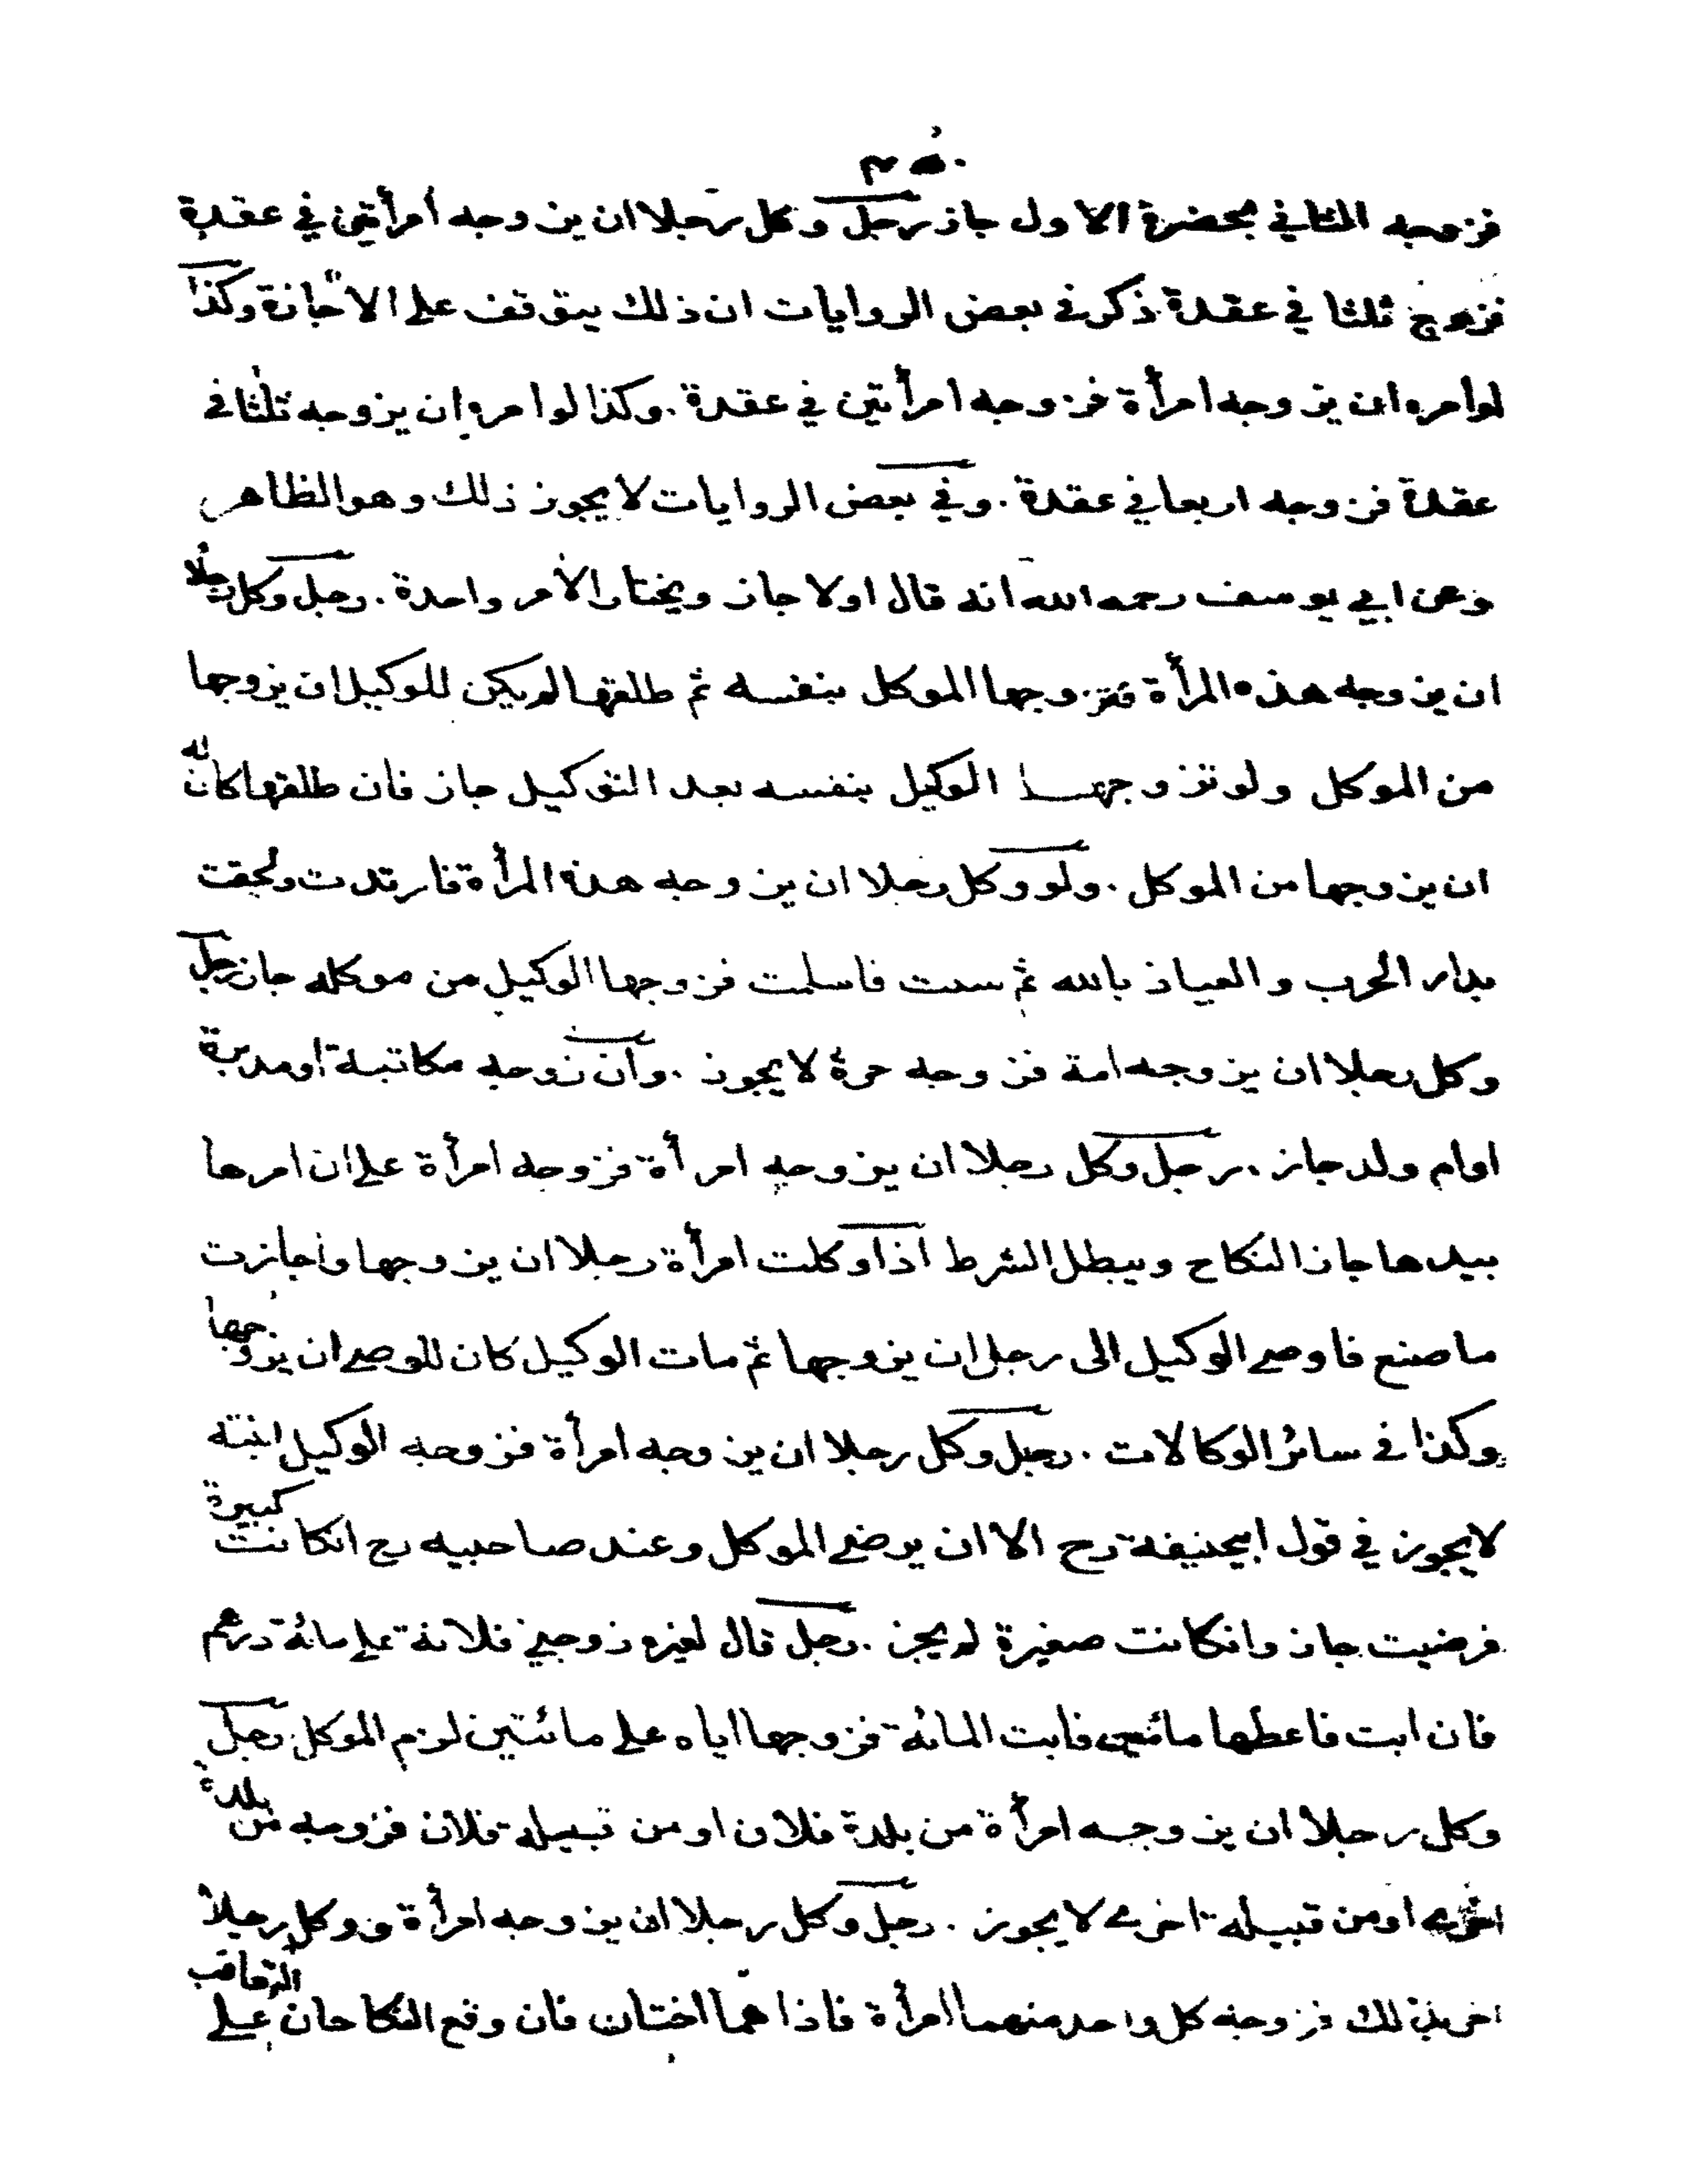 فزوجه الثاني بحضرة الاول جاز رجل وكل رجلا ان يزوجه امرأتين في عقدة
فزوج ثلثا في عقدة ذكر في بعض الروايات ان ذلك يتوقف على الاجازة وكذا
لو امره ان يزوجه امرأة فزوجه امرأتين في عقدة . وكذا لو امره ان يزوجه ثلثا في
عقدة فزوجه اربعا في عقدة . وفي بعض الروايات لا يجوز ذلك وهو الظاهر
وعن ابي يوسف رحمه الله انه قال اولا جاز ويختار الأمر واحدة . رجل وكل رجلا
ان يزوجه هذه المرأة فتزوجها الموكل بنفسه ثم طلقها لم يكن للوكيل ان يزوجها
من الموكل ولو تزوجها الوكيل بنفسه بعد التوكيل جاز فان طلقها كان له
ان يزوجها من الموكل . ولو وكل رجلا ان يزوجه هذه المرأة فارتدت ولحقت
بدار الحرب والعياذ بالله ثم سبت فاسلمت فزوجها الوكيل من موكله جاز رجل
وكل رجلا ان يزوجه امة فزوجه حرة لا يجوز . وان زوجه مكاتبة او مدبرة
او ام ولد جاز . رجل وكل رجلا ان يزوجه امرأة فزوجه امرأة على ان امرها
بيدها جاز النكاح ويبطل الشرط اذا وكلت امرأة رجلا ان يزوجها واجازت
ما صنع فاوصى الوكيل الى رجل ان يزوجها ثم مات الوكيل كان للوصي ان يزوجها
وكذا في سائر الوكالات . رجل وكل رجلا ان يزوجه امرأة فزوجه الوكيل ابنته
لا يجوز في قول ابيحنيفة رح الا ان يرضى الموكل وعند صاحبيه رح انكانت كبيرة
فرضيت جاز وانكانت صغيرة لم يجز . رجل قال لغيره زوجني فلانة على مائة درهم
فان ابت فاعطها مائتين فابت المائة فزوجها اياه على مائتين لزم الموكل رجل
وكل رجلا ان يزوجه امرأة من بلدة فلان او من قبيلة فلان فزوجه من بلدة
اخرى او من قبيلة اخرى لا يجوز . رجل وكل رجلا ان يزوجه امرأة ووكل رجلا
اخر بذلك فزوجه كل واحد منهما امرأة فاذا هما اختان فان وقع النكاحان على التعاقب